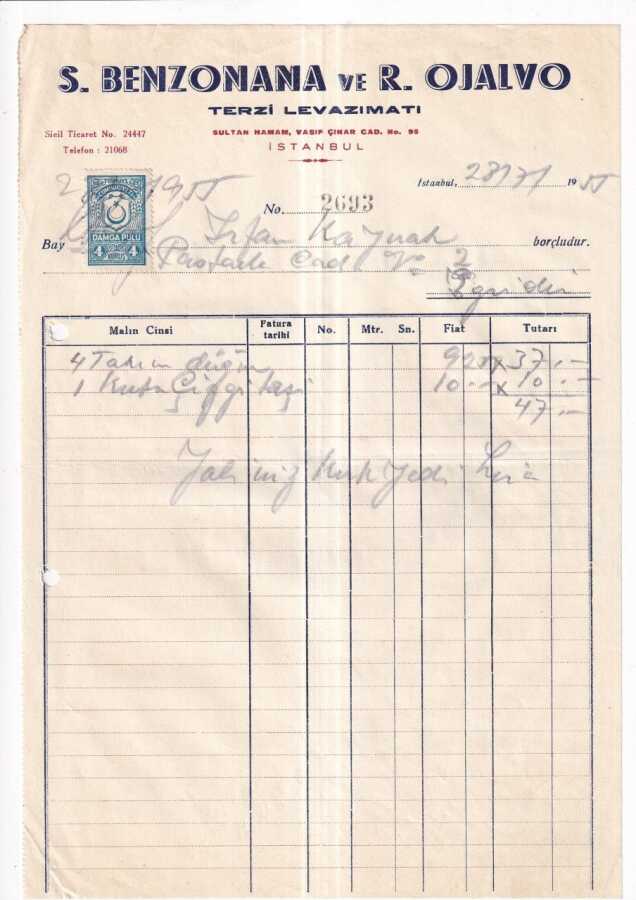 S. BENZONANA VE R. OJALVO
TERZİ LEVAZIMATI
Sicil Ticaret No. 24447
Telefon : 21068
SULTAN HAMAM, VASIF ÇINAR CAD. No. 95
İSTANBUL
1955
DAMGA PULU
4 4
İstanbul, 28/ 1955
No. 2693
Bay İrfan Kaynak borçludur.
Cad No 2
Malın Cinsi Fatura tarihi No. Mtr. Sn. Fiat Tutarı
4 Takım düğm 925 x 37.-
1 Kutu Çizgi taşi 10.- x 10.-
47.-
Yalınız Kırk Yedi Lira